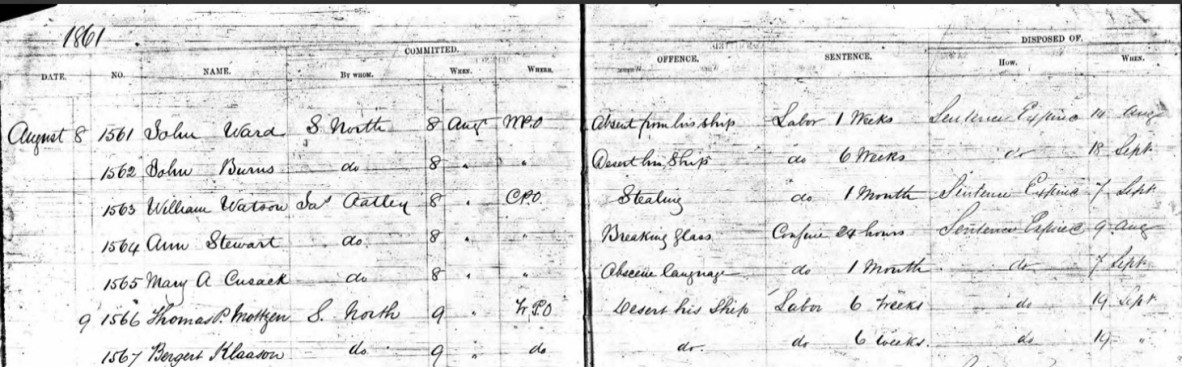 1861
COMMITTED.
DISPOSED OF.
DATE. NO. NAME. BY WHOM. WHEN. WHERE. OFFENCE. SENTENCE. HOW. WHEN.
August 8 1561 John Ward S. North 8 Aug W.P.O Absent from his ship Labor 1 Weeks Sentence Expired 14 Aug
1562 John Burns do 8 " " Desert his Ship do 6 Weeks do 18 Sept
1563 William Watson Jas 8 " C.P.O Stealing do 1 Month Sentence Expired 7 Sept
1564 Ann Stewart do. 8 " " Breaking glass Confine 24 hours Sentence Expired 9 Aug
1565 Mary A Cusack do 8 " " Obscene language do 1 Month do 7 Sept
9 1566 Thomas P. S. North 9 " W.P.O Desert his Ship Labor 6 Weeks do 19 Sept
1567 Bergert Klaason do 9 " do do. do 6 Weeks. do 19 "